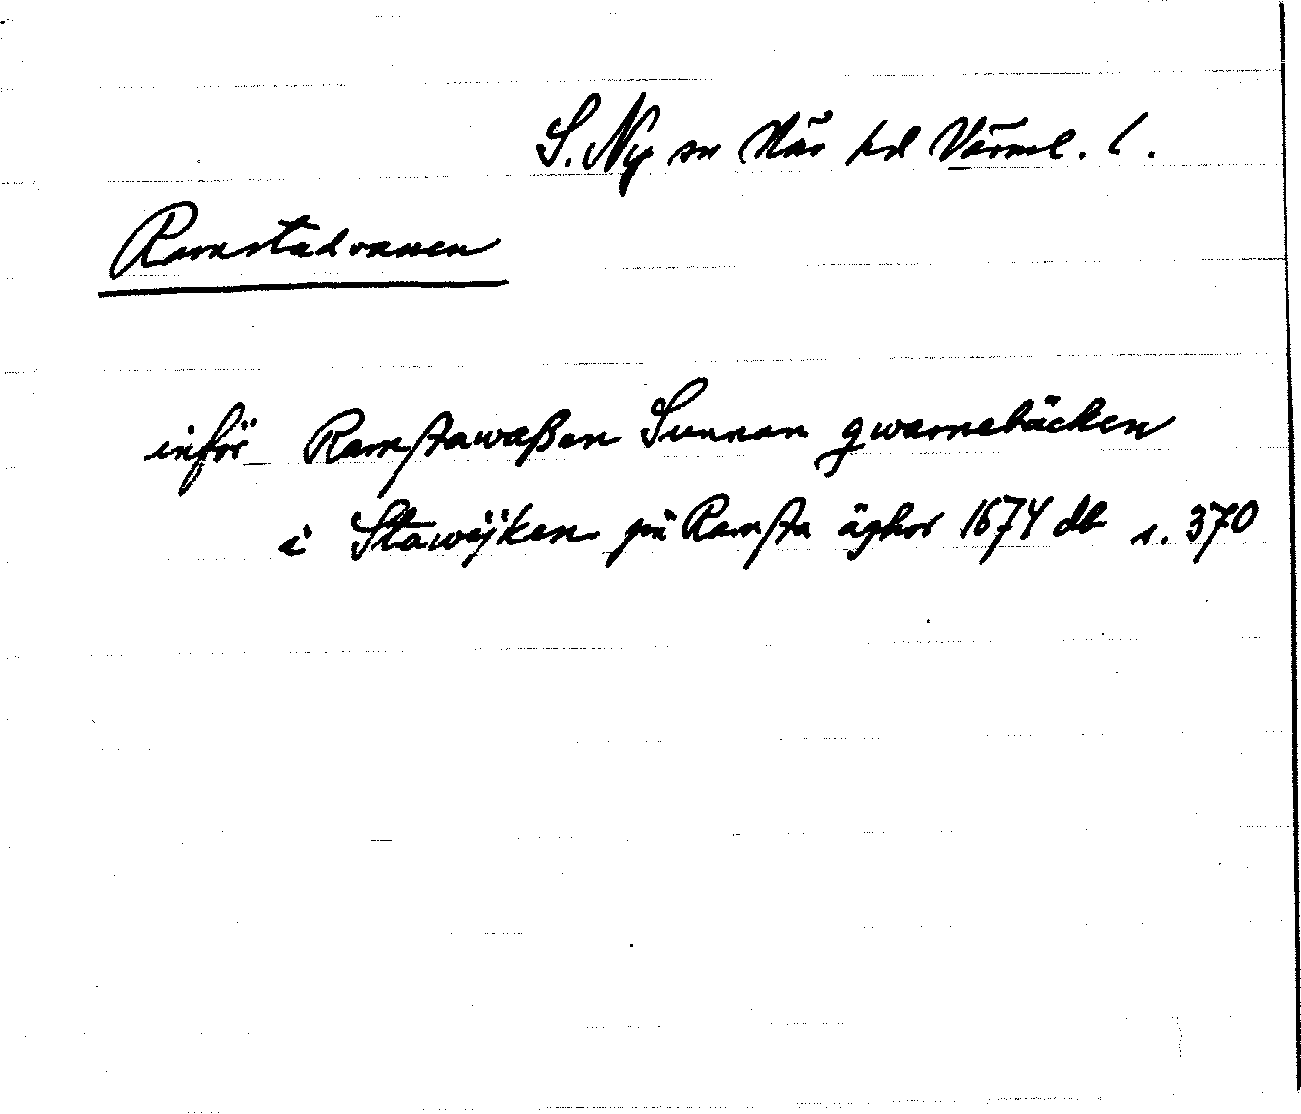 S. Ny sn Näs hd Värml. l.
Ramstadvassen
inför Ramstawaßen Sunnan qwarnebäcken
i Stawijken på Ramsta äghor 1674 db s. 370